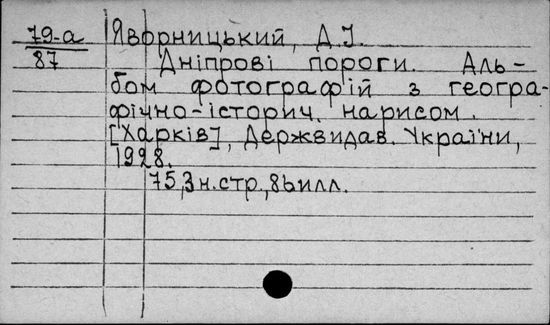 79-а Яворницький, Д.І.
87 Дніпрові пороги. Аль-
бом фотографій з геогра-
фічно-історич. нарисом.
[Харків], Держвидав. України,
1928.
75,3н.стр., 86илл.